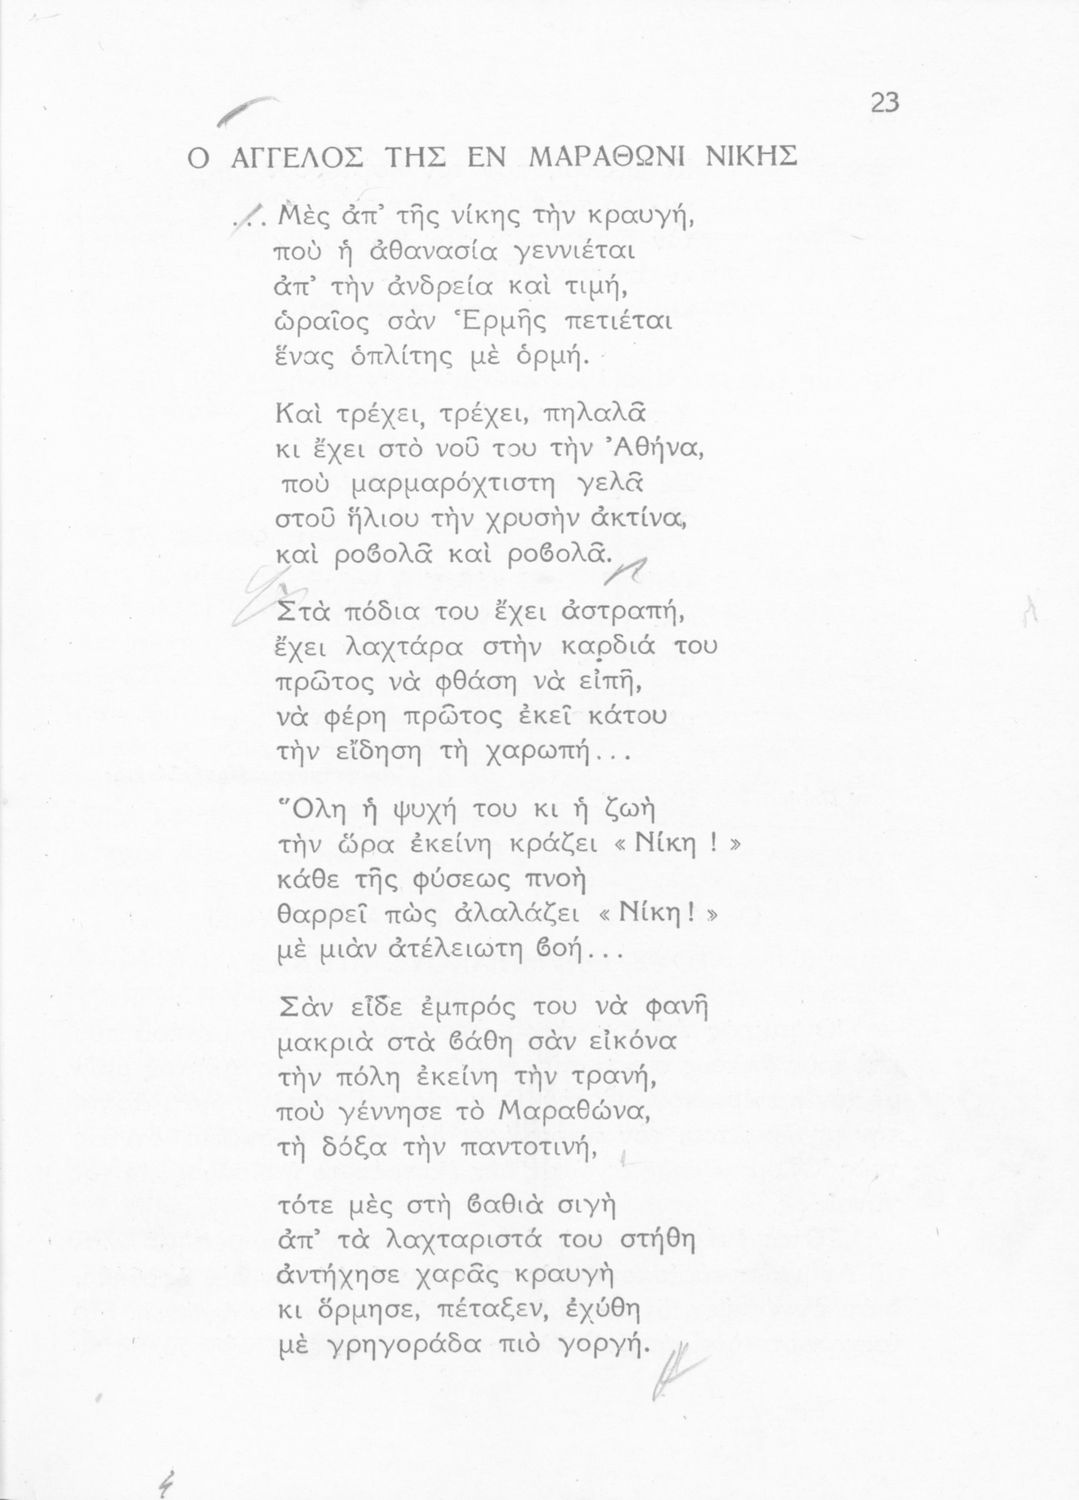 23
Ο ΑΓΓΕΛΟΣ ΤΗΣ ΕΝ ΜΑΡΑΘΩΝΙ ΝΙΚΗΣ
... Μὲς ἀπ’ τῆς νίκης τὴν κραυγή,
ποὺ ἡ ἀθανασία γεννιέται
ἀπ’ τὴν ἀνδρεία καὶ τιμή,
ὡραῖος σὰν Ἑρμῆς πετιέται
ἕνας ὁπλίτης μὲ ὁρμή.
Καὶ τρέχει, τρέχει, πηλαλᾶ
κι ἔχει στὸ νοῦ του τὴν Ἀθήνα,
ποὺ μαρμαρόχτιστη γελᾶ
στοῦ ἥλιου τὴν χρυσὴν ἀκτίνα,
καὶ ροβολᾶ καὶ ροβολᾶ.
Στὰ πόδια του ἔχει ἀστραπή,
ἔχει λαχτάρα στὴν καρδιά του
πρῶτος νὰ φθάση νὰ εἰπῆ,
νὰ φέρη πρῶτος ἐκεῖ κάτου
τὴν εἴδηση τὴ χαρωπή...
Ὅλη ἡ ψυχή του κι ἡ ζωὴ
τὴν ὥρα ἐκείνη κράζει « Νίκη ! »
κάθε τῆς φύσεως πνοὴ
θαρρεῖ πὼς ἀλαλάζει « Νίκη! »
μὲ μιὰν ἀτέλειωτη βοή...
Σὰν εἶδε ἐμπρός του νὰ φανῆ
μακριὰ στὰ βάθη σὰν εἰκόνα
τὴν πόλη ἐκείνη τὴν τρανή,
ποὺ γέννησε τὸ Μαραθώνα,
τὴ δόξα τὴν παντοτινή,
τότε μὲς στὴ βαθιὰ σιγὴ
ἀπ’ τὰ λαχταριστά του στήθη
ἀντήχησε χαρᾶς κραυγὴ
κι ὅρμησε, πέταξεν, ἐχύθη
μὲ γρηγοράδα πιὸ γοργή.